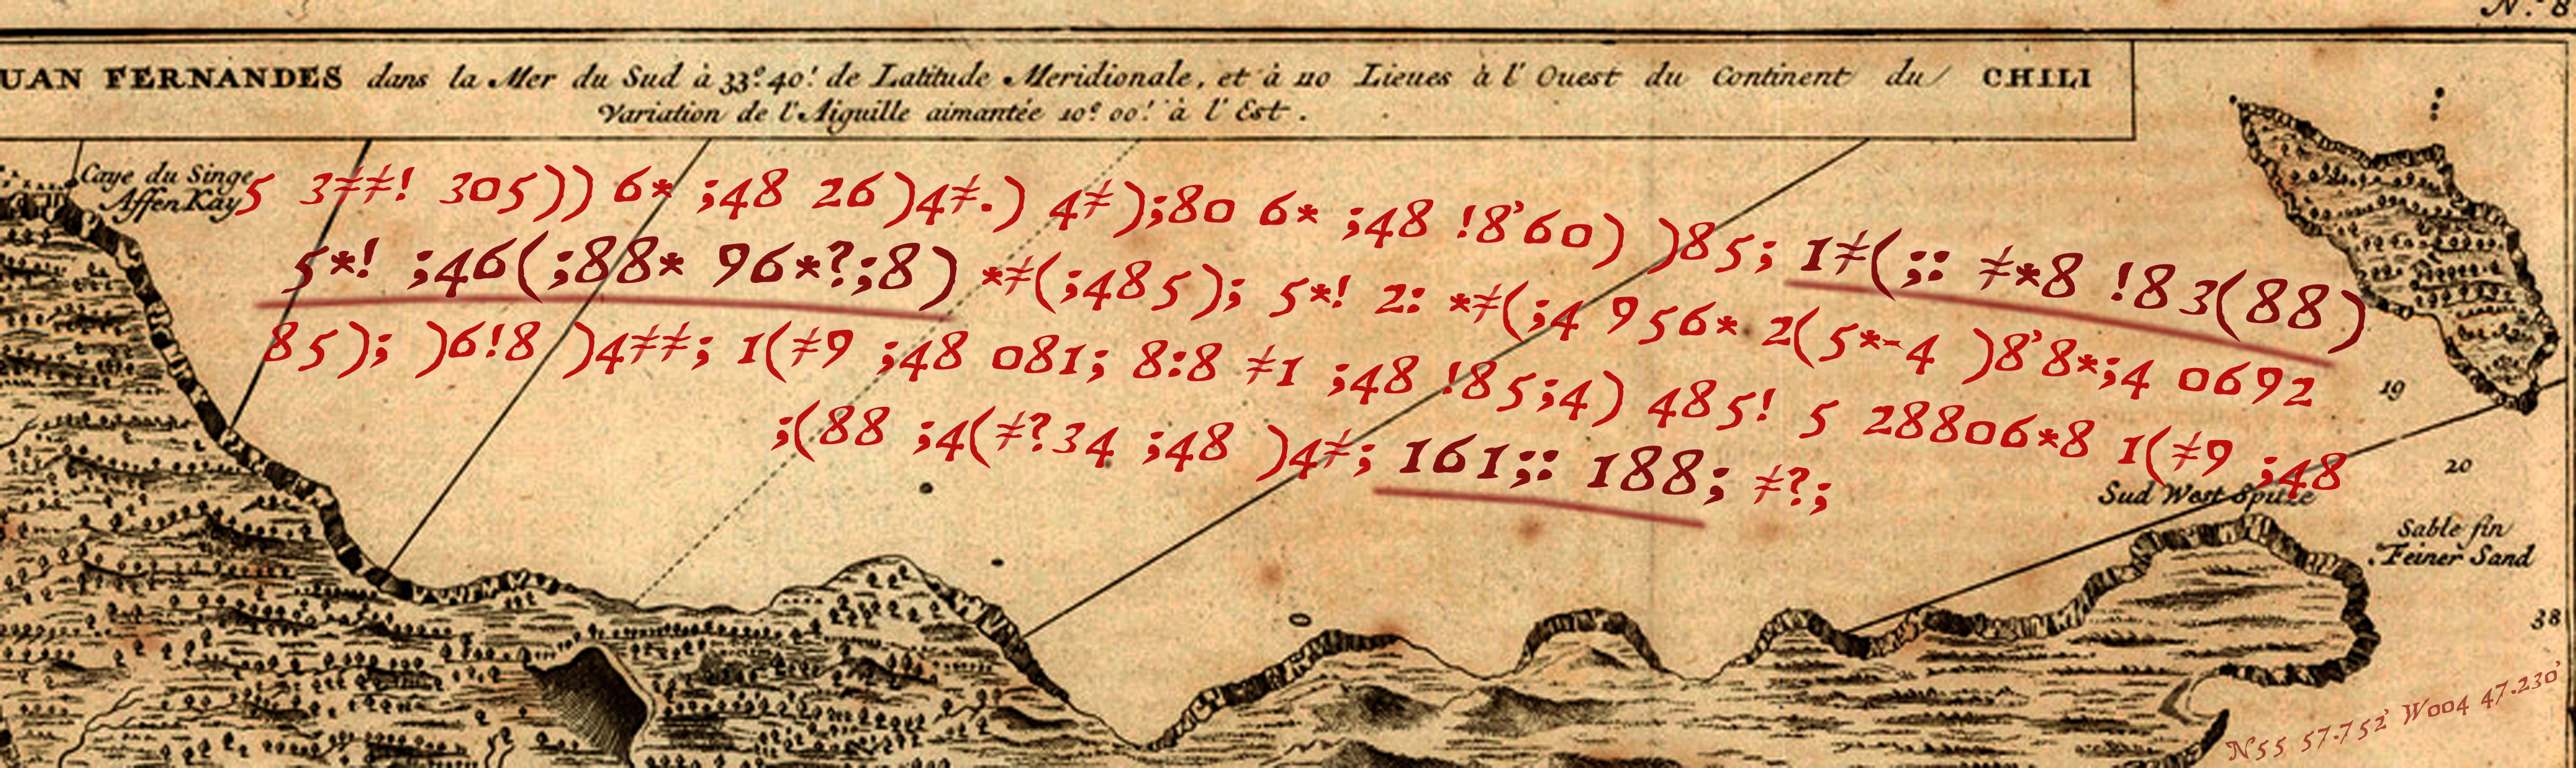 N.º 8
UAN FERNANDES dans la Mer du Sud à 33º. 40! de Latitude Meridionale, et à 110 Lieues à l'Ouest du Continent du CHILI
Variation de l'Aiguille aimantée 10º. 00! à l'Est.
Caye du Singe
Affen Kay
5 3≠≠! 305)) 6* ;48 26)4≠.) 4≠);80 6* ;48 !8'60) )85; 1≠(;: ≠*8 !83(88)
5*! ;46(;88* 96*?;8) *≠(;485); 5*! 2: *≠(;4 956* 2(5*-4 )8'8*;4 0692
85); )6!8 )4≠≠; 1(≠9 ;48 081; 8:8 ≠1 ;48 !85;4) 485! 5 28806*8 1(≠9 ;48
;(88 ;4(≠?34 ;48 )4≠; 161;: 188; ≠?;
19
20
Sud West Spitze
Sable fin
Feiner Sand
38
N55 57.752' W004 47.230'